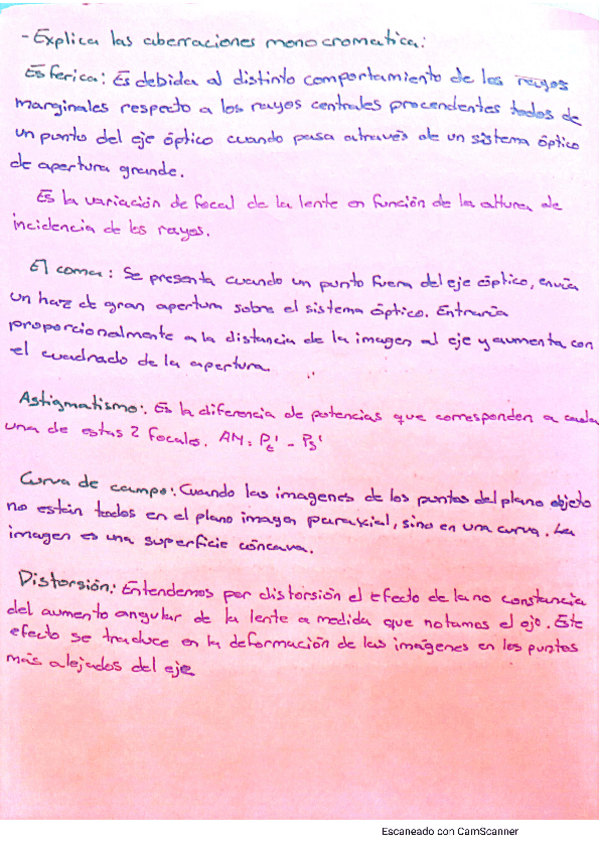 - Explica las aberraciones monocromatica:
Esferica: Es debida al distinto comportamiento de los rayos
marginales respecto a los rayos centrales procendentes todos de
un punto del eje óptico cuando pasa através de un sistema óptico
de apertura grande.
Es la variación de focal de la lente en función de la altura de
incidencia de los rayos.
El coma: Se presenta cuando un punto fuera del eje óptico, envía
un haz de gran apertura sobre el sistema óptico. Entraría
proporcionalmente a la distancia de la imagen al eje y aumenta con
el cuadrado de la apertura.
Astigmatismo: Es la diferencia de potencias que corresponden a cada
una de estas 2 focales. AM: Pt' - Ps'
Curva de campo: Cuando las imagenes de los puntos del plano objeto
no están todos en el plano imagen paraxial, sino en una curva. La
imagen es una superficie cóncava.
Distorsión: Entendemos por distorsión el efecto de la no constancia
del aumento angular de la lente a medida que notamos el eje. Este
efecto se traduce en la deformación de las imágenes en los puntos
más alejados del eje
Escaneado con CamScanner